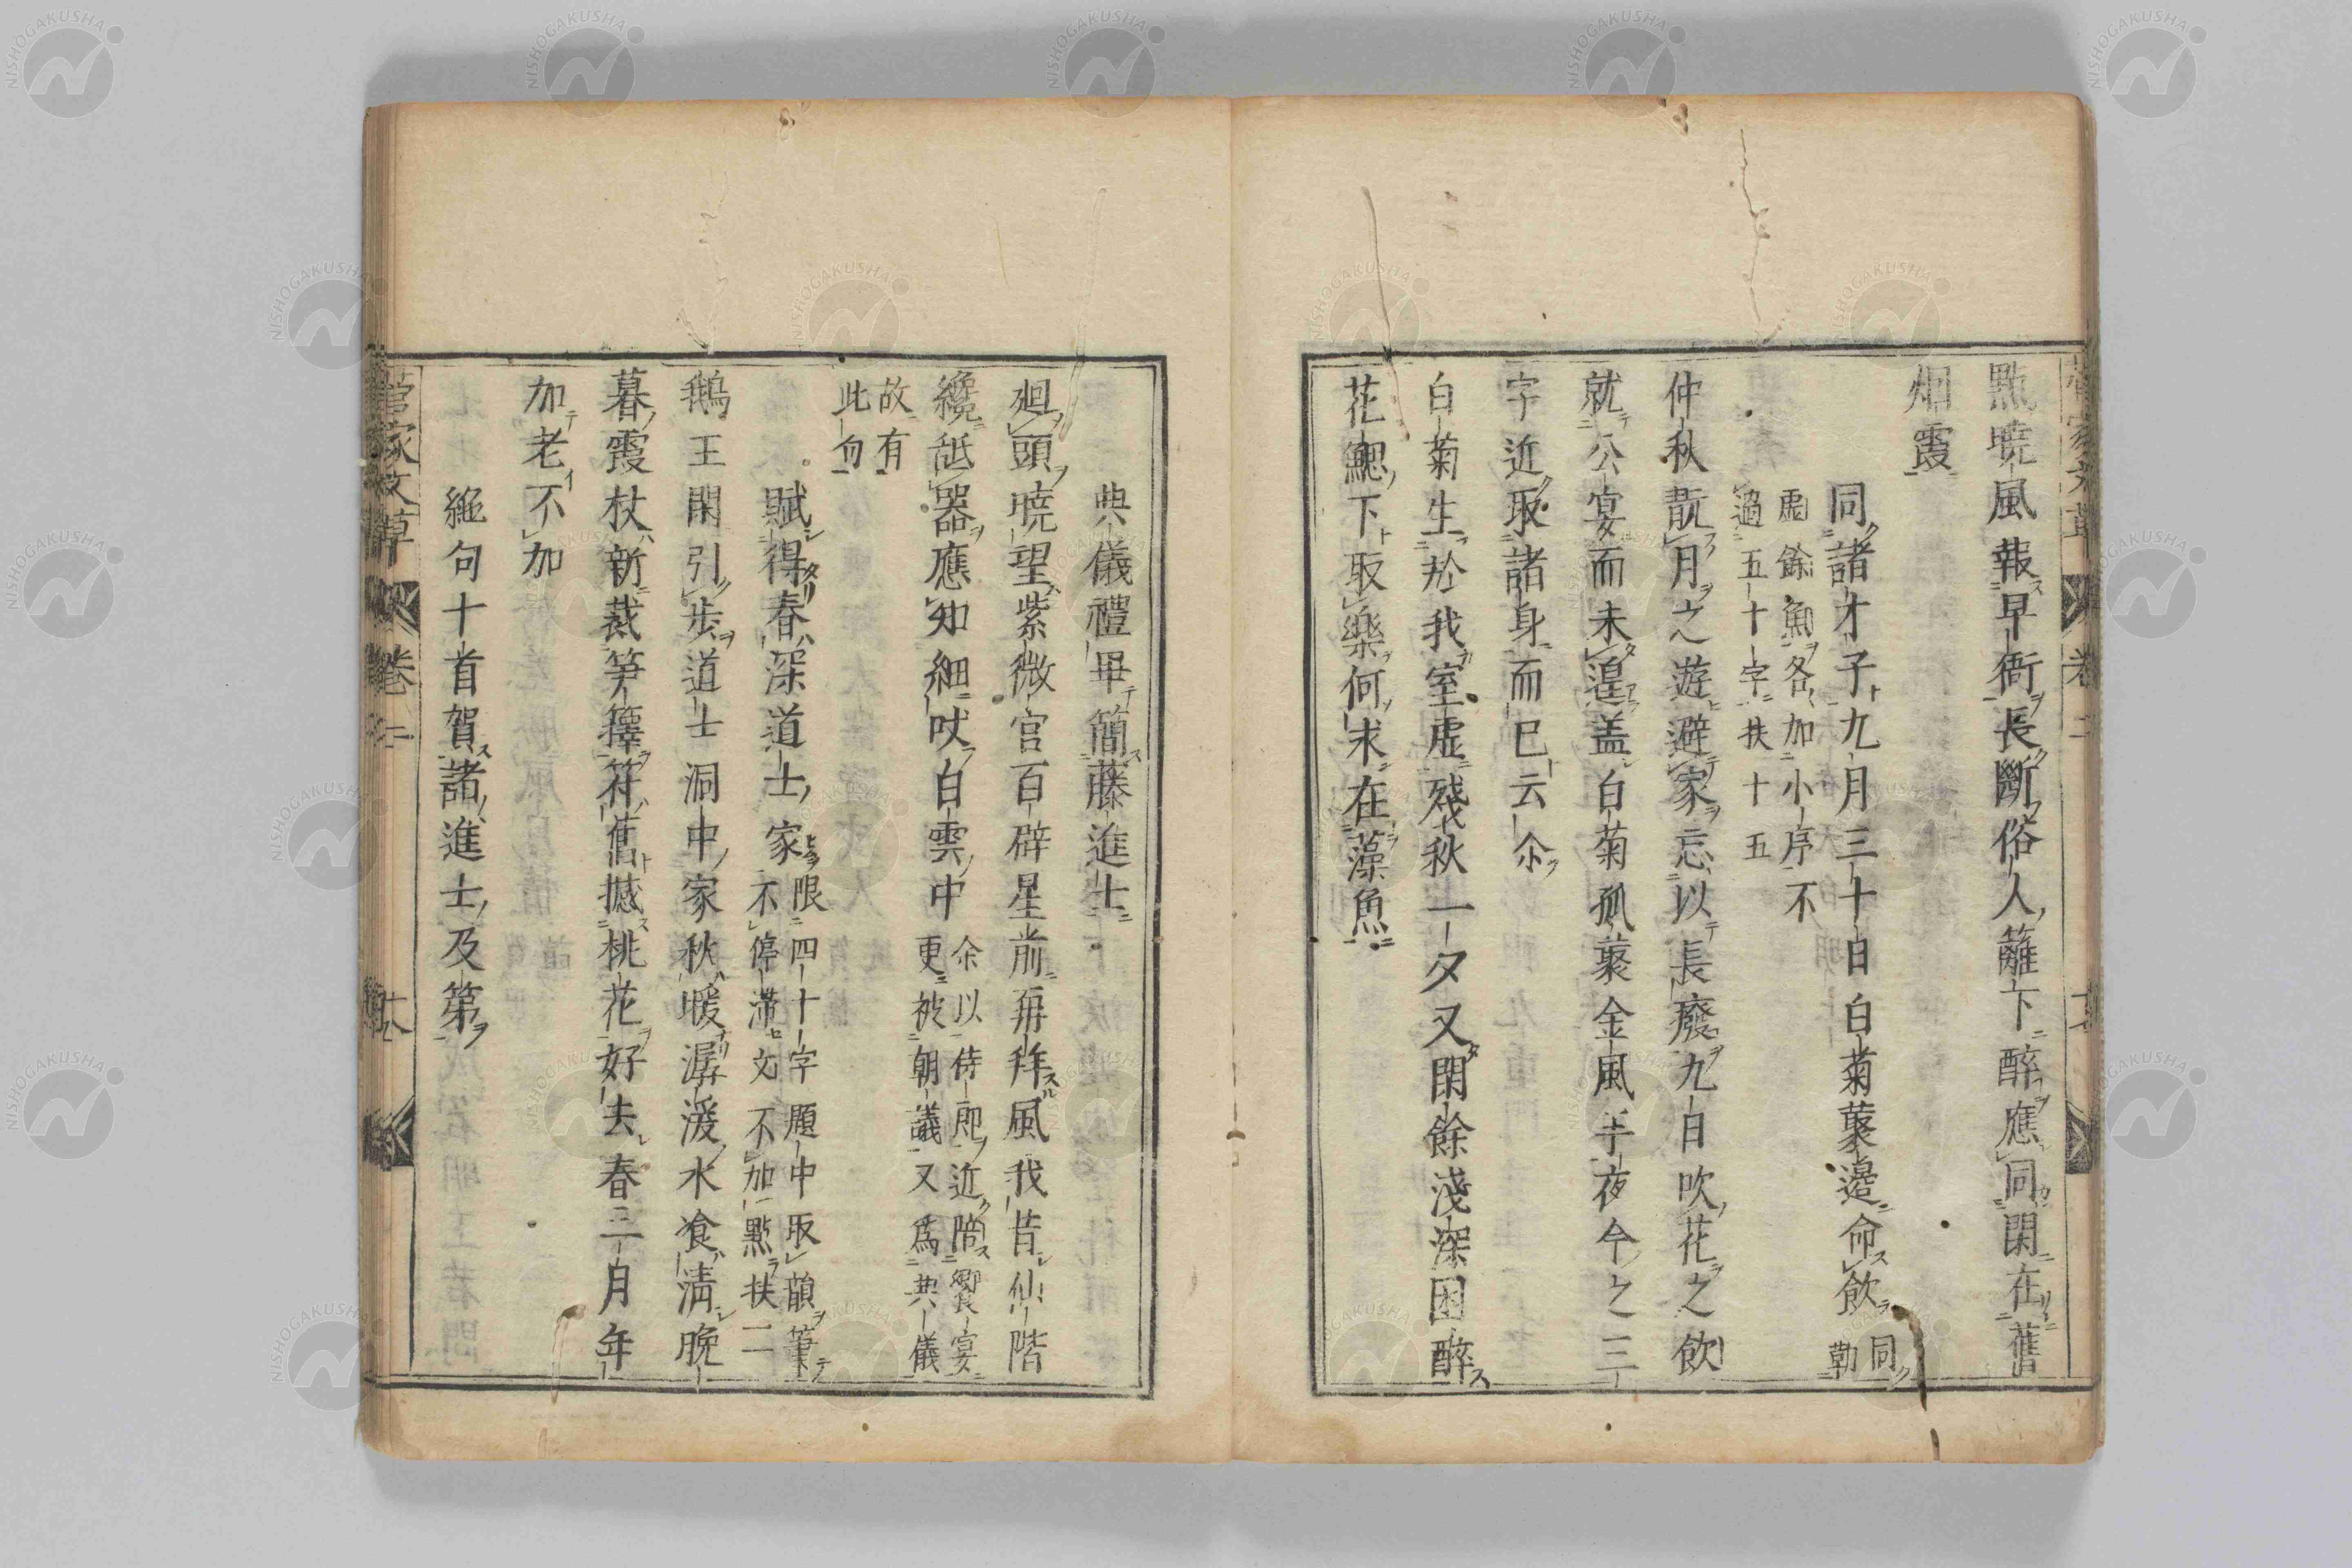 點曉風報早衙長斷俗人籬下醉應同閑在舊
烟霞
同諸才子九月三十日白菊藂邊命飲同勒
虛餘魚各加小序不
過五十字扶十五
仲秋翫月之遊避家忌以長廢九日吹花之飲
就公宴而未遑盖白菊孤藂金風半夜今之三
字近取諸身而已云尒
白菊生於我室虛殘秋一夕又閑餘淺深困醉
花鰓下取樂何求在藻魚
典儀禮畢簡藤進士
廻頭曉望紫微宮百辟星前再拜風我昔仙階
纔舐器應知細吠白雲中余以侍郎近陪饗宴
更被朝議又爲典儀
故有
此句
賦得春深道士家限四十字題中取韻筆
不停滯文不加點扶二
鵝王閑引步道士洞中家秋暖潺湲水食淸晚
暮霞杖新裁笋籜符舊撼桃花好去春三月年
加老不加
絶句十首賀諸進士及第
菅家文草 卷二